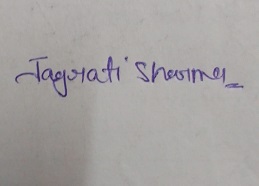 Jagrati Sharma